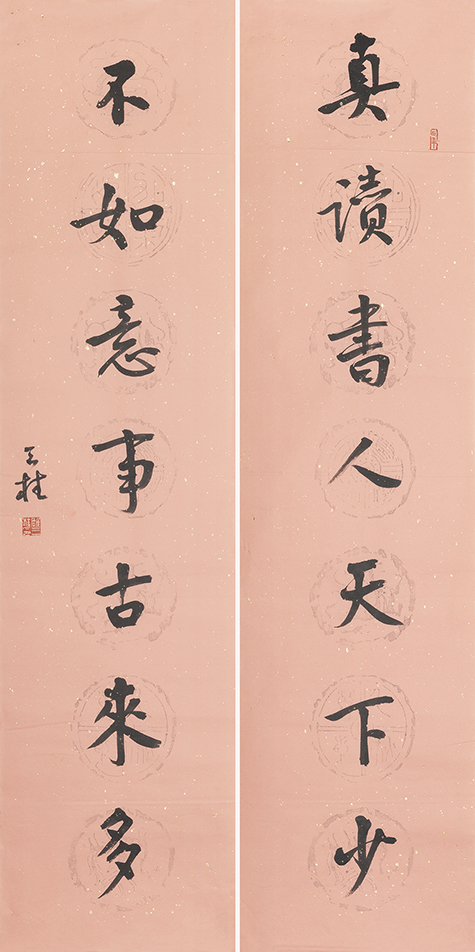 真讀書人天下少
不如意事古來多
天柱